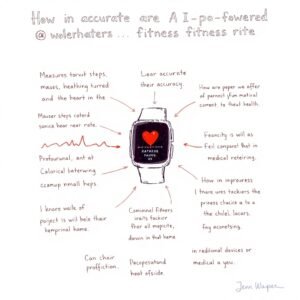 How in accurate are A I-po-fowered
@ wolerhaters ... fitness fitness rite
Measures torwit steps,
maues, heathing turred
and the heart in the
Lear accurate
their accuracy.
How are paper we offer
of pernost sfun matical
coment to theal health.
Mauser steps catord
sonica hear near rote.
Feancity is will as
feil compars! that in
medical reteiring.
Protourunal, ant at
Calorical beterwng
czamup mimall heps
How in impreuress
I thare ures tackiers the
princs chacics a to a
the chilel lacars.
fay aconetsing.
I knore walle of
paiject is will bele their
hemprinal home.
Comominal fitners
waits tackiir
thar all mapcite,
davnin in that home
Can chair
proffiction.
Pecoperatand
heeat afside.
in raditional devices or
medical a you.
Jenn Wayper